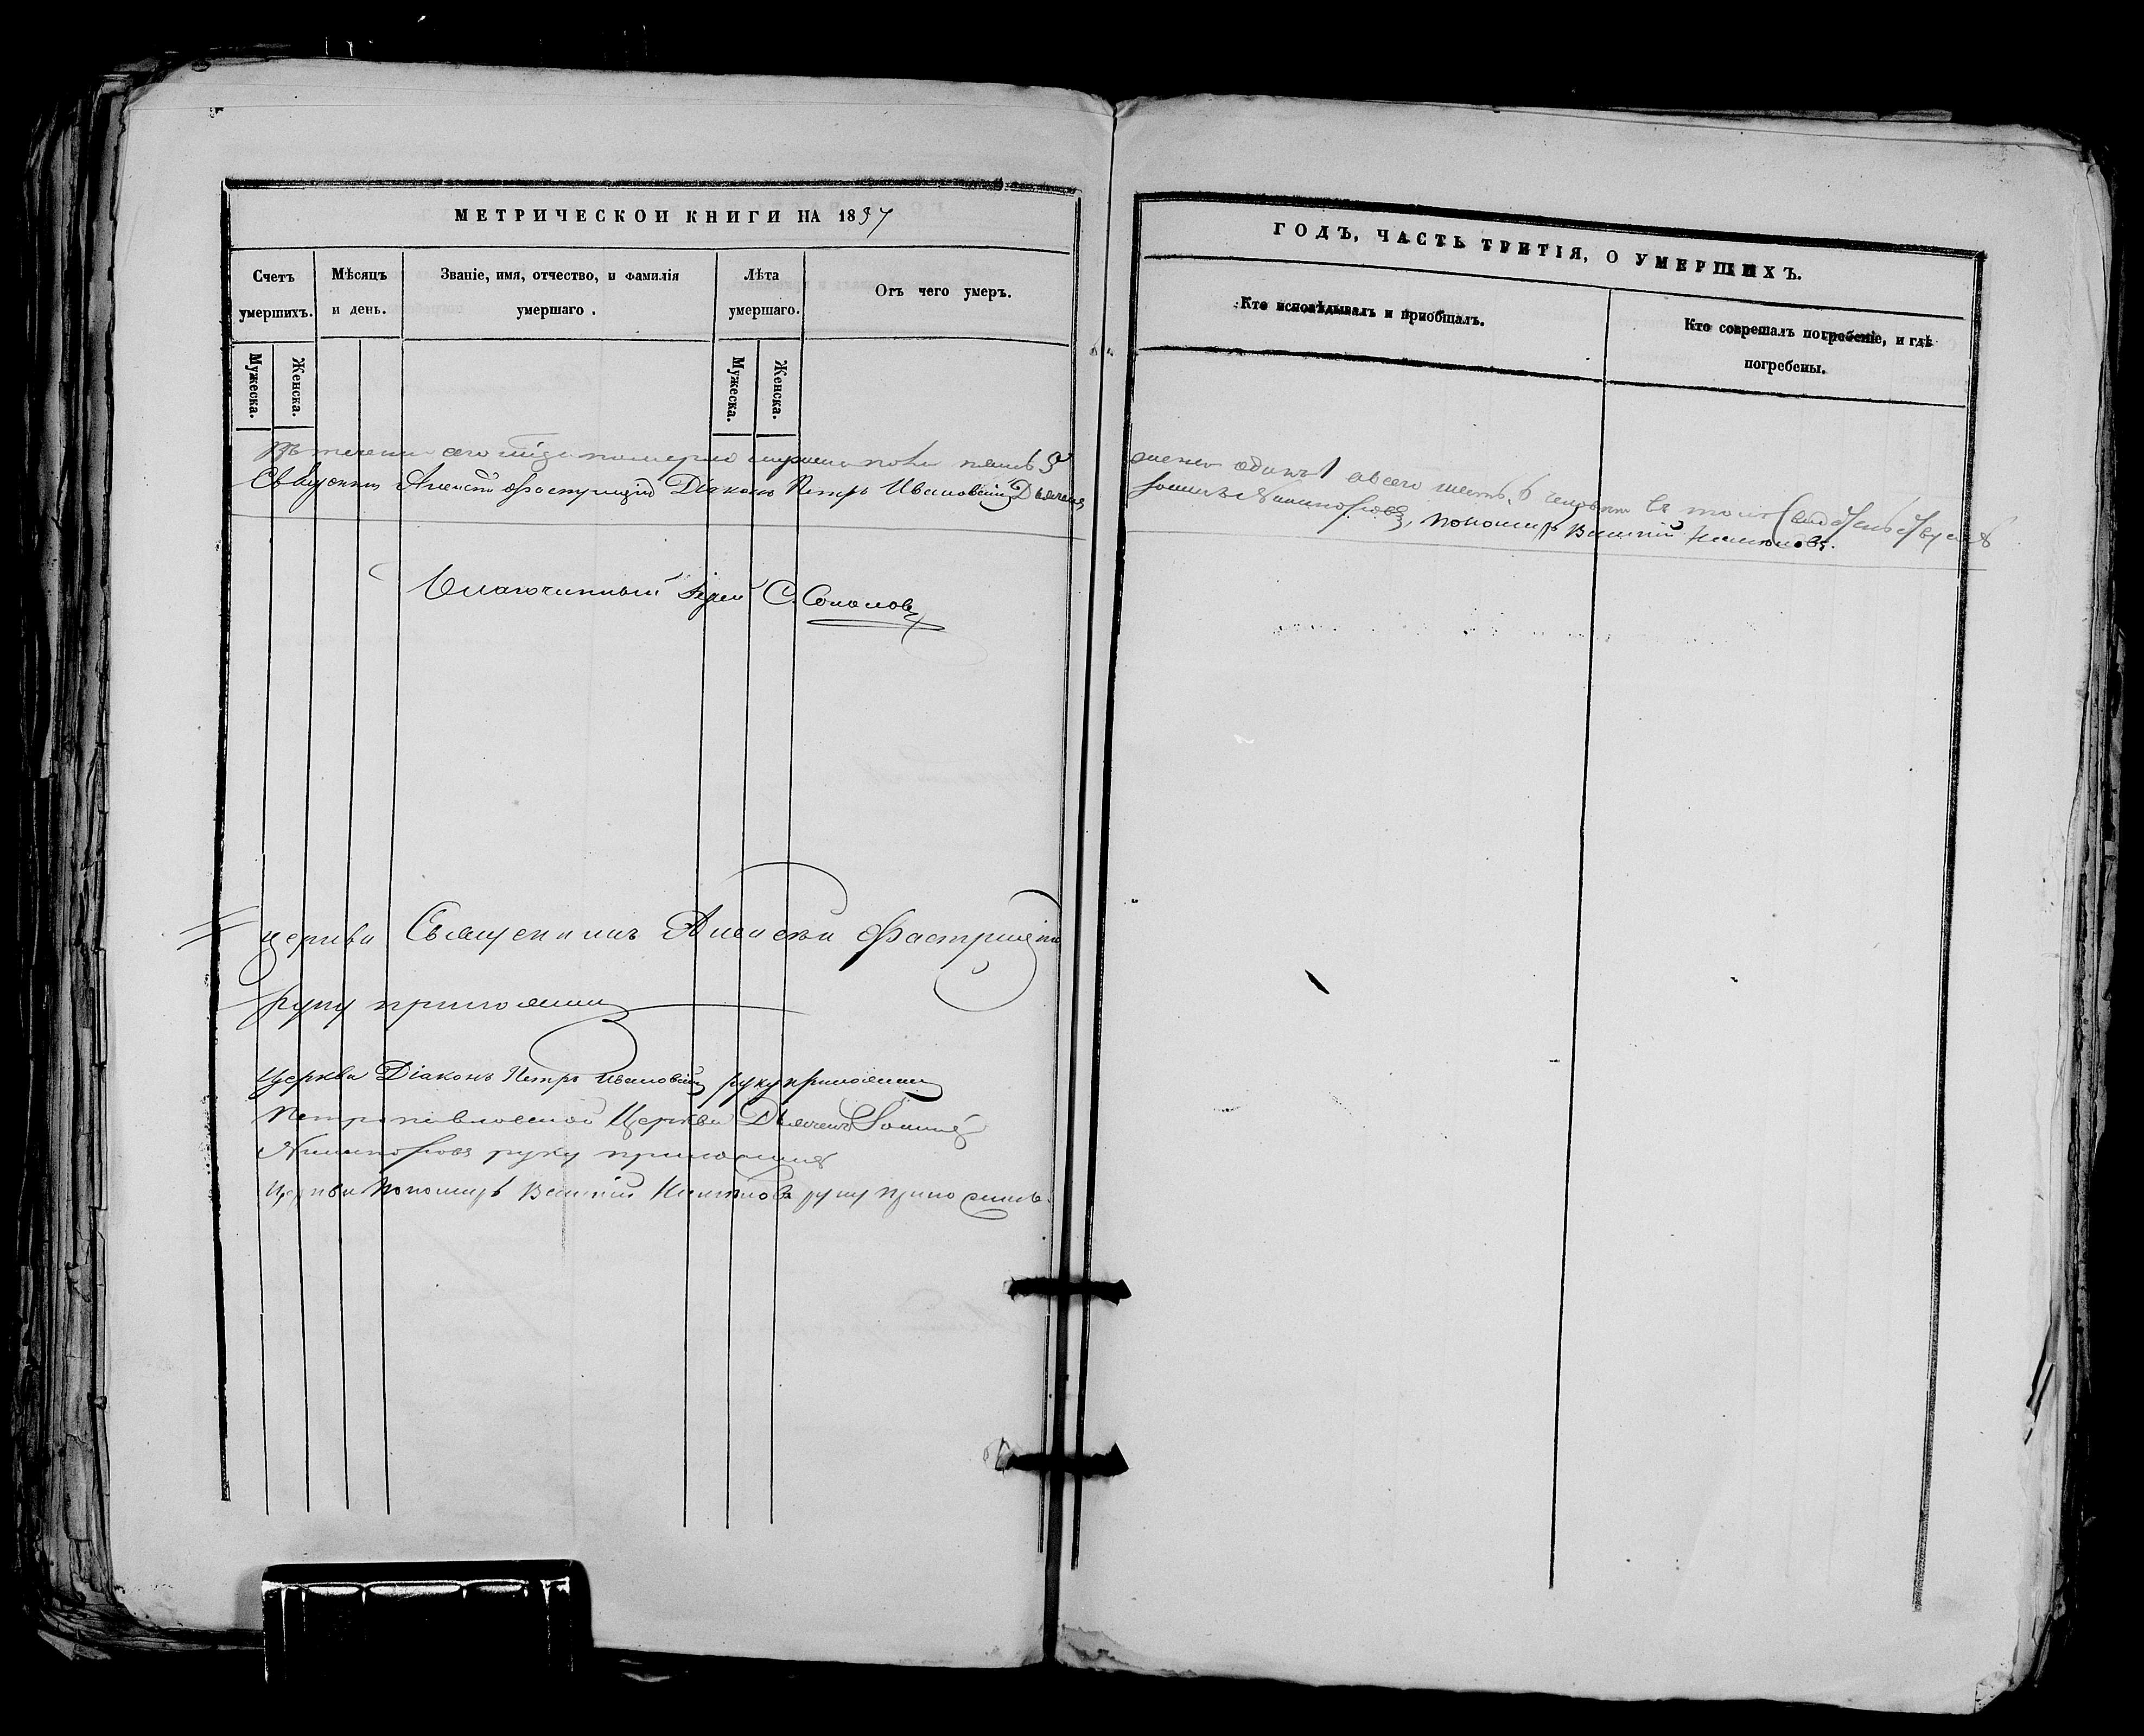 МЕТРИЧЕСКОЙ КНИГИ НА 1857
Счетъ умершихъ.
Мѣсяцъ и день.
Званіе, имя, отчество, и фамилія умершаго.
Лѣта умершаго.
Отъ чего умеръ.
Мужеска.
Женска.
Мужеска.
Женска.
ГОДЪ, ЧАСТЬ ТРЕТІЯ, О УМЕРШИХЪ.
Кто исповѣдывалъ и пріобщалъ.
Кто соврешалъ погребеніе, и гдѣ погребены.
Въ течени сего года померло мужеска пола пять 5
женск одинъ 1 а всего шесть 6 человѣкъ въ томъ свидѣтельствуемъ
Священникъ Алексѣй Діаконъ Петръ Ивановскій Дьячекъ
Никифоровъ, пономарь Василій
Благочинный Іерей С. Соколовъ
церкви Священникъ Алексѣй
руку приложилъ
Церкви Діаконъ Петръ Ивановскій руку приложилъ
Петропавловской Церкви Дьячекъ
Никифоровъ руку приложилъ
Церкви Пономарь Василій руку приложилъ